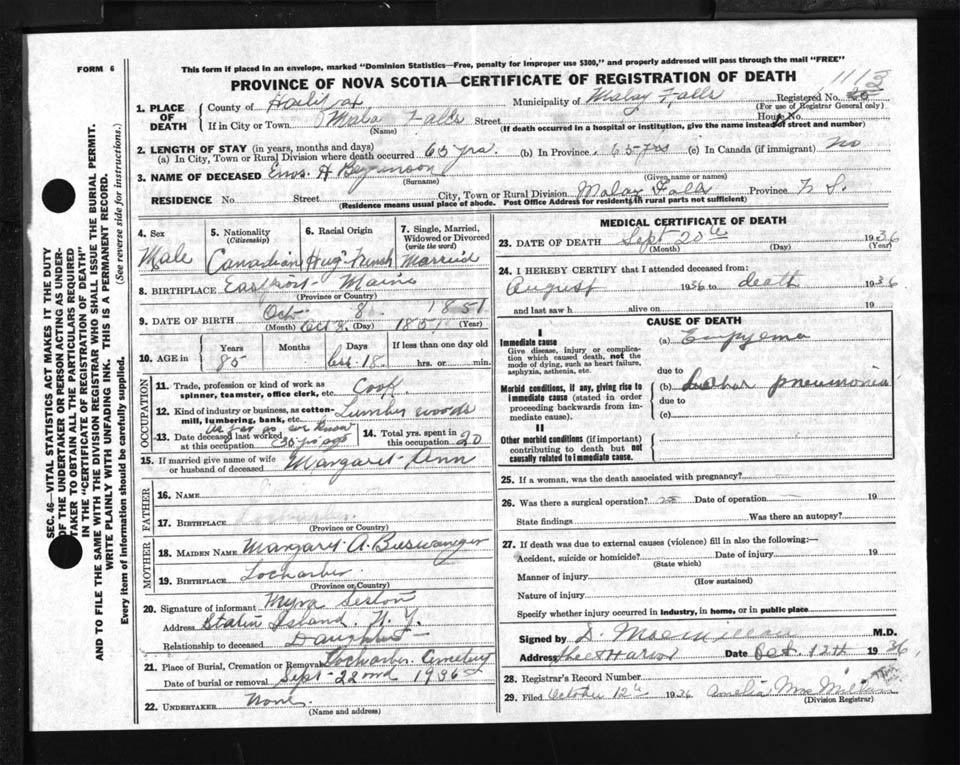 FORM 6
This form if placed in an envelope, marked "Dominion Statistics—Free, penalty for improper use $300," and properly addressed will pass through the mail "FREE"
PROVINCE OF NOVA SCOTIA—CERTIFICATE OF REGISTRATION OF DEATH
1113
1. PLACE OF DEATH
County of Halifax Municipality of Malay Falls Registered No.
(For use of Registrar General only)
If in City or Town Malay Falls Street House No.
(Name) (If death occurred in a hospital or institution, give the name instead of street and number)
2. LENGTH OF STAY (in years, months and days)
(a) In City, Town or Rural Division where death occurred 65 yrs. (b) In Province 65 yrs (c) In Canada (if immigrant) no
3. NAME OF DECEASED Enos. H
(Surname) (Given name or names)
RESIDENCE No. Street City, Town or Rural Division Malay Falls Province N S.
(Residence means usual place of abode. Post Office Address for residents in rural parts not sufficient)
4. Sex Male
5. Nationality (Citizenship) Canadian
6. Racial Origin Hug. French
7. Single, Married, Widowed or Divorced (write the word) Married
8. BIRTHPLACE Eastport - Maine
(Province or Country)
9. DATE OF BIRTH Oct 8 1851
(Month) Oct 8 (Day) 1851 (Year)
10. AGE in Years Months Days If less than one day old
85 less 18 hrs. or min.
OCCUPATION
11. Trade, profession or kind of work as spinner, teamster, office clerk, etc. Cook
12. Kind of industry or business, as cotton-mill, lumbering, bank, etc. Lumber woods
as far as we know
13. Date deceased last worked at this occupation 30 yrs ago
14. Total yrs. spent in this occupation 20
15. If married give name of wife or husband of deceased Margaret
FATHER
16. NAME
17. BIRTHPLACE
(Province or Country)
MOTHER
18. MAIDEN NAME Margaret A. Biswanger
19. BIRTHPLACE Lochaber
(Province or Country)
20. Signature of informant Myra Sexton
Address Staten Island. N. Y.
Relationship to deceased Daughter
21. Place of Burial, Cremation or Removal Lochaber. Cemetery
Date of burial or removal Sept 22nd 1936
22. UNDERTAKER None
(Name and address)
MEDICAL CERTIFICATE OF DEATH
23. DATE OF DEATH Sept 20th 1936
(Month) (Day) (Year)
24. I HEREBY CERTIFY that I attended deceased from:
August 1936 to death 1936
and last saw h alive on 19
CAUSE OF DEATH
I
Immediate cause
Give disease, injury or complication which caused death, not the mode of dying, such as heart failure, asphyxia, asthenia, etc.
(a) Empyema
due to
Morbid conditions, if any, giving rise to immediate cause (stated in order proceeding backwards from immediate cause).
(b) Lobar pneumonia
due to
(c)
II
Other morbid conditions (if important) contributing to death but not causally related to immediate cause.
25. If a woman, was the death associated with pregnancy?
26. Was there a surgical operation? no Date of operation 19
State findings Was there an autopsy?
27. If death was due to external causes (violence) fill in also the following:—
Accident, suicide or homicide? Date of injury 19
(State which)
Manner of injury
(How sustained)
Nature of injury
Specify whether injury occurred in industry, in home, or in public place
Signed by D. MacMillan M.D.
Address Sheet Harbor Date Oct. 12th 1936
28. Registrar's Record Number
29. Filed October 12th 1936 Amelia MacMillan
(Division Registrar)
SEC. 46—VITAL STATISTICS ACT MAKES IT THE DUTY
OF THE UNDERTAKER OR PERSON ACTING AS UNDER-
TAKER TO OBTAIN ALL THE PARTICULARS REQUIRED
IN THE "CERTIFICATE OF REGISTRATION OF DEATH"
AND TO FILE THE SAME WITH THE DIVISION REGISTRAR WHO SHALL ISSUE THE BURIAL PERMIT.
WRITE PLAINLY WITH UNFADING INK. THIS IS A PERMANENT RECORD.
Every item of information should be carefully supplied. (See reverse side for instructions.)